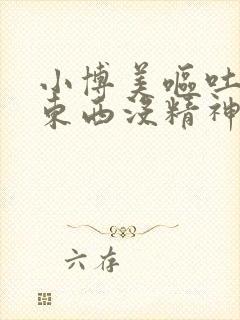 小博美呕吐
東西没精神
六存